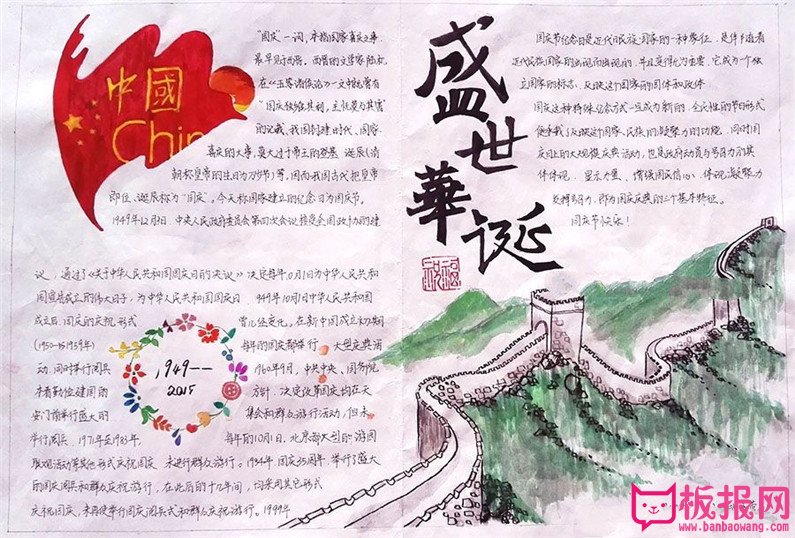 中國
Chin
"国庆"一词,本指国家喜庆之事、
最早见于西晋。西晋的文学家陆机
在《五等诸侯论》一文中就曾有
"国庆独飨其利,主忧莫与其害"
的记载、我国封建时代、国家
喜庆的大事,莫大过于帝王的登基、诞辰(清
朝称皇帝的生日为万岁节)等。因而我国古代把皇帝
即位、诞辰称为"国庆"。今天称国家建立的纪念日为国庆节。
1949年12月3日,中央人民政府委员会第四次会议接受全国政协的建
议,通过了《关于中华人民共和国国庆日的决议》决定每年10月1日为中华人民共和
国宣告成立的伟大日子,为中华人民共和国国庆日 1949年10月1日中华人民共和国
成立后,国庆的庆祝形式 曾几经变化。在新中国成立初期
(1950-1959年) 每年的国庆都举行 大型庆典活
动,同时举行阅兵 1960年9月,中共中央、国务院
本着勤俭建国的 方针,决定改革国庆 在天
安门前举行盛大的 集会和群众游行活动,但未
举行阅兵 1971年至1983年, 每年的10月1日,北京都 大型的游园
联欢活动等其他形式庆祝国庆 未进行群众游行。1984年 国庆35周年,举行了盛大
的国庆阅兵和群众庆祝游行,在此后的十几年间,均采用其它形式
庆祝国庆,未再举行国庆阅兵式和群众庆祝游行。1999年
1949——
2015
盛世華诞
祝福
国庆节纪念日是近代民族国家的一种象征,是伴随着
近代民族国家的出现而出现的,并且变得尤为重要,它成为一个独
立国家的标志,反映这个国家的国体和政体
国庆这种特殊纪念方式一旦成为新的、全民性的节日形式
便承载了反映这个国家、民族的凝聚力的功能。同时国
庆日上的大规模庆典活动,也是政府动员与号召力的具
体体现。显示力量、增强国民信心,体现凝聚力
发挥号召力,即为国庆庆典的三个基本特征。
国庆节快乐!
板报网
www.banbaowang.com